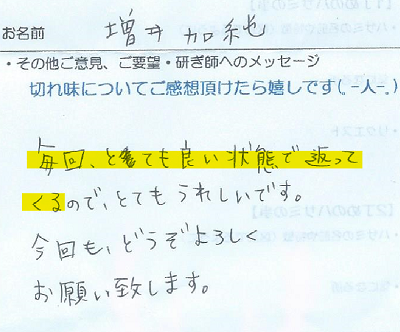 お名前 増井 加純
・その他ご意見、ご要望・研ぎ師へのメッセージ
切れ味についてご感想頂けたら嬉しです(．-人-．)
毎回、とても良い状態で返って
くるので、とてもうれしいです。
今回も、どうぞよろしく
お願い致します。